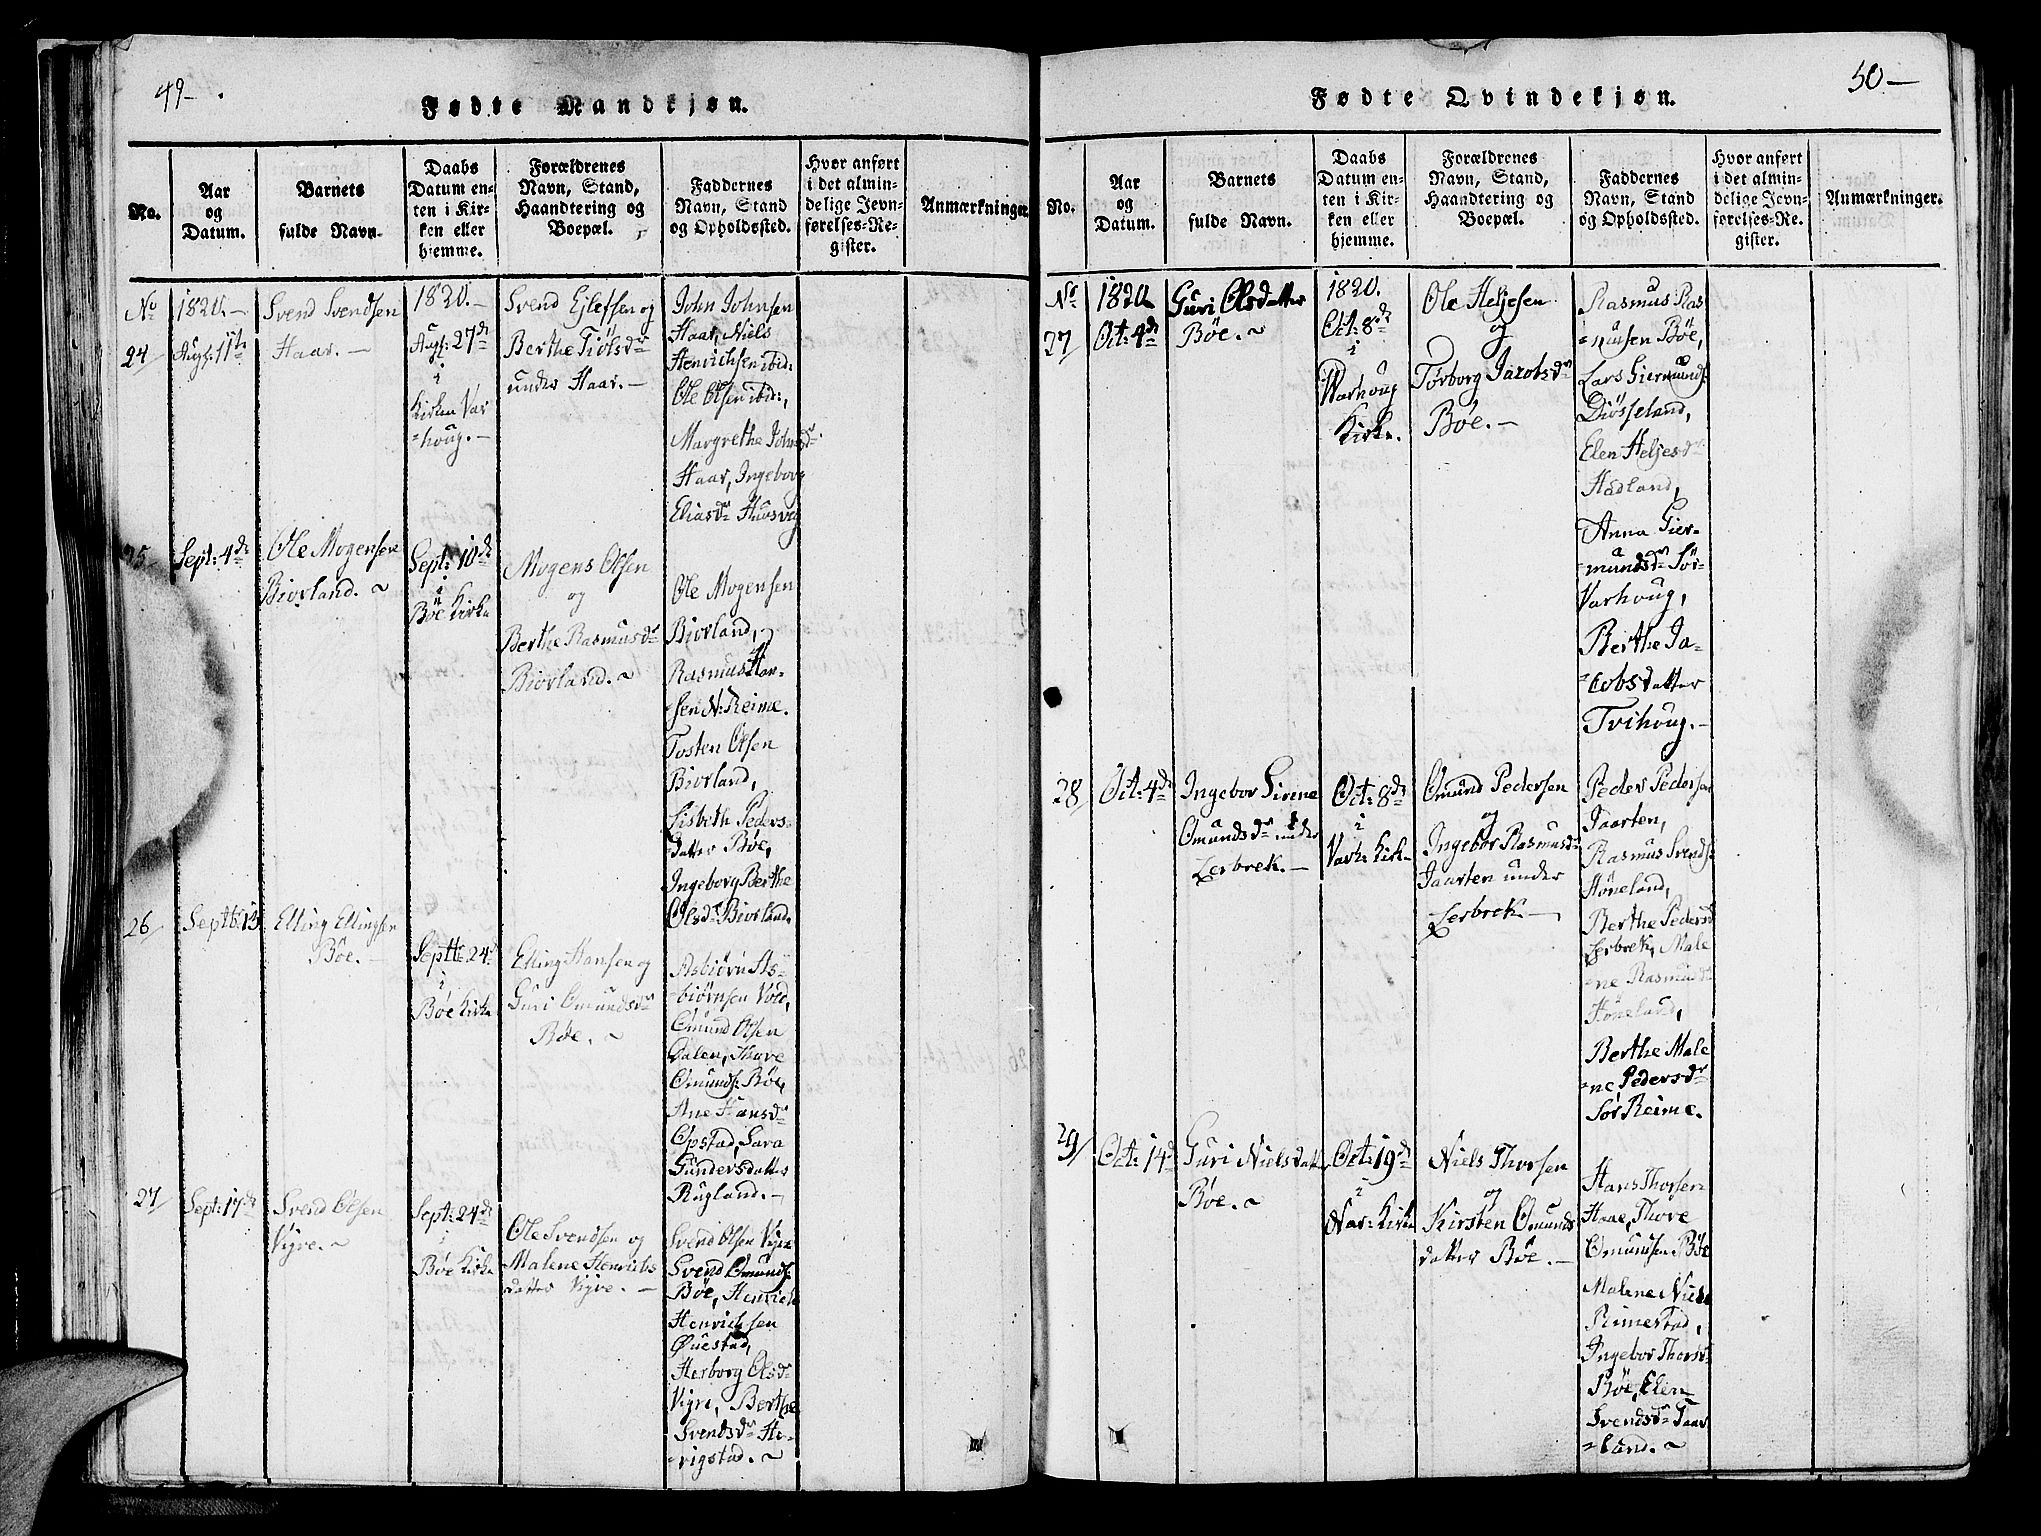 49-
Fødte Mandkjøn.
No.
Aar
og
Datum.
Barnets
fulde Navn.
Daabs
Datum en-
ten i Kir-
ken eller
hjemme.
Forældrenes
Navn, Stand,
Haandtering og
Boepæl.
Faddernes
Navn, Stand
og Opholdssted.
Hvor anført
i det almin-
delige Jevn-
førelses-Re-
gister.
Anmærkninger.
No
24/
1820.-
Augs: 11te
Svend Svendsen
Haar.-
1820.-
Augs: 27de
i
Kirken Var
=houg.-
Svend Ejlefsen og
Berthe Tiölsdr
under Haar.-
John Johnsen
Haar, Niels
Henrichsen ibid:
Ole Olsen ibid:,
Margrethe Johnsdr
Haar, Ingeborg
Eliasdr Huusveg
25
Sept: 4de
Ole Mogensen
Biorland. ~
Sept: 10de
i
Böe Kirke
Mogens Olsen
og
Berthe Rasmusdr
Biorland. ~
Ole Mogensen
Bjorland,
Rasmus Han-
=sen N: Reime.
Tosten Olsen
Biorland,
Lisbeth Peders-
datter Böe,
Ingeborg Berthe
Olsdr Biorland.
26/
Septb: 13
Elling Ellingsen
Böe.-
Septb: 24de
i
Böe Kirke
Elling Hansen og
Guri Omundsdr
Böe. ~
Asbiörn As-
biörnsen Vold,
Omund Olsen
Dalen, Thove
Omunds: Böe,
Ane Hansdr
Opstad, Sara
Gundersdatter
Rugland.-
27/
Sept: 17de
Svend Olsen
Vigre. ~
Sept: 24de
i
Böe Kirke
Ole Svendsen og
Malene Henrichs
datter Vigre.-
Svend Olsen Vigre
Svend Omunds:
Böe, Henrich
Henrichsen
Øuestad,
Herborg Olsdr
Vigre, Berthe
Svendsdr He-
=rigstad. ~
50-
Fødte Qvindekjøn.
No.
Aar
og
Datum.
Barnets
fulde Navn.
Daabs
Datum en-
ten i Kir-
ken eller
hjemme.
Forældrenes
Navn, Stand,
Haandtering og
Boepæl.
Faddernes
Navn, Stand
og Opholdssted.
Hvor anført
i det almin-
delige Jevn-
førelses-Re-
gister.
Anmærkninger.
No
27/
1820
Oct: 4de
Guri Olsdatter
Böe. ~
1820.
Oct: 8de
i
Warhoug
Kirke.
Ole Heljesen
og
Torborg Jacobsdr
Böe.-
Rasmus Ras
=musen Böe,
Lars Giermunds:
Diösseland,
Elen Heljesdr
Hadland,
Anna Gier-
=mundsdr Sör-
Varhoug,
Berthe Ja-
=cobsdatter
Tvihoug.-
28/
Oct: 4de
Ingebor Sirine
Omundsdr under
Lerbrek.-
Oct: 8de
i
Varh: Kirke
Omund Pedersen
og
Ingebor Rasmusdr
Jaarten under
Lerbrek.-
Peder Pedersen
Jaarten,
Rasmus Svends:
Höneland,
Berthe Pedersdr
Lerbrek, Male
=ne Rasmusdr
Höneland,
Berthe Male
=ne Pedersdr
Sör Reime.
29/
Oct: 14de
Guri Nielsdatter
Böe. ~
Oct: 19de
i
Nar: Kirke
Niels Thorsen
og
Kirsten Omunds
datter Böe.-
Hans Thorsen
Haae, Thove
Omundsen Böe
Malene Niels
Rimestad,
Ingebor Thorsdr
Böe, Elen
Svendsdr Taar
=land. ~